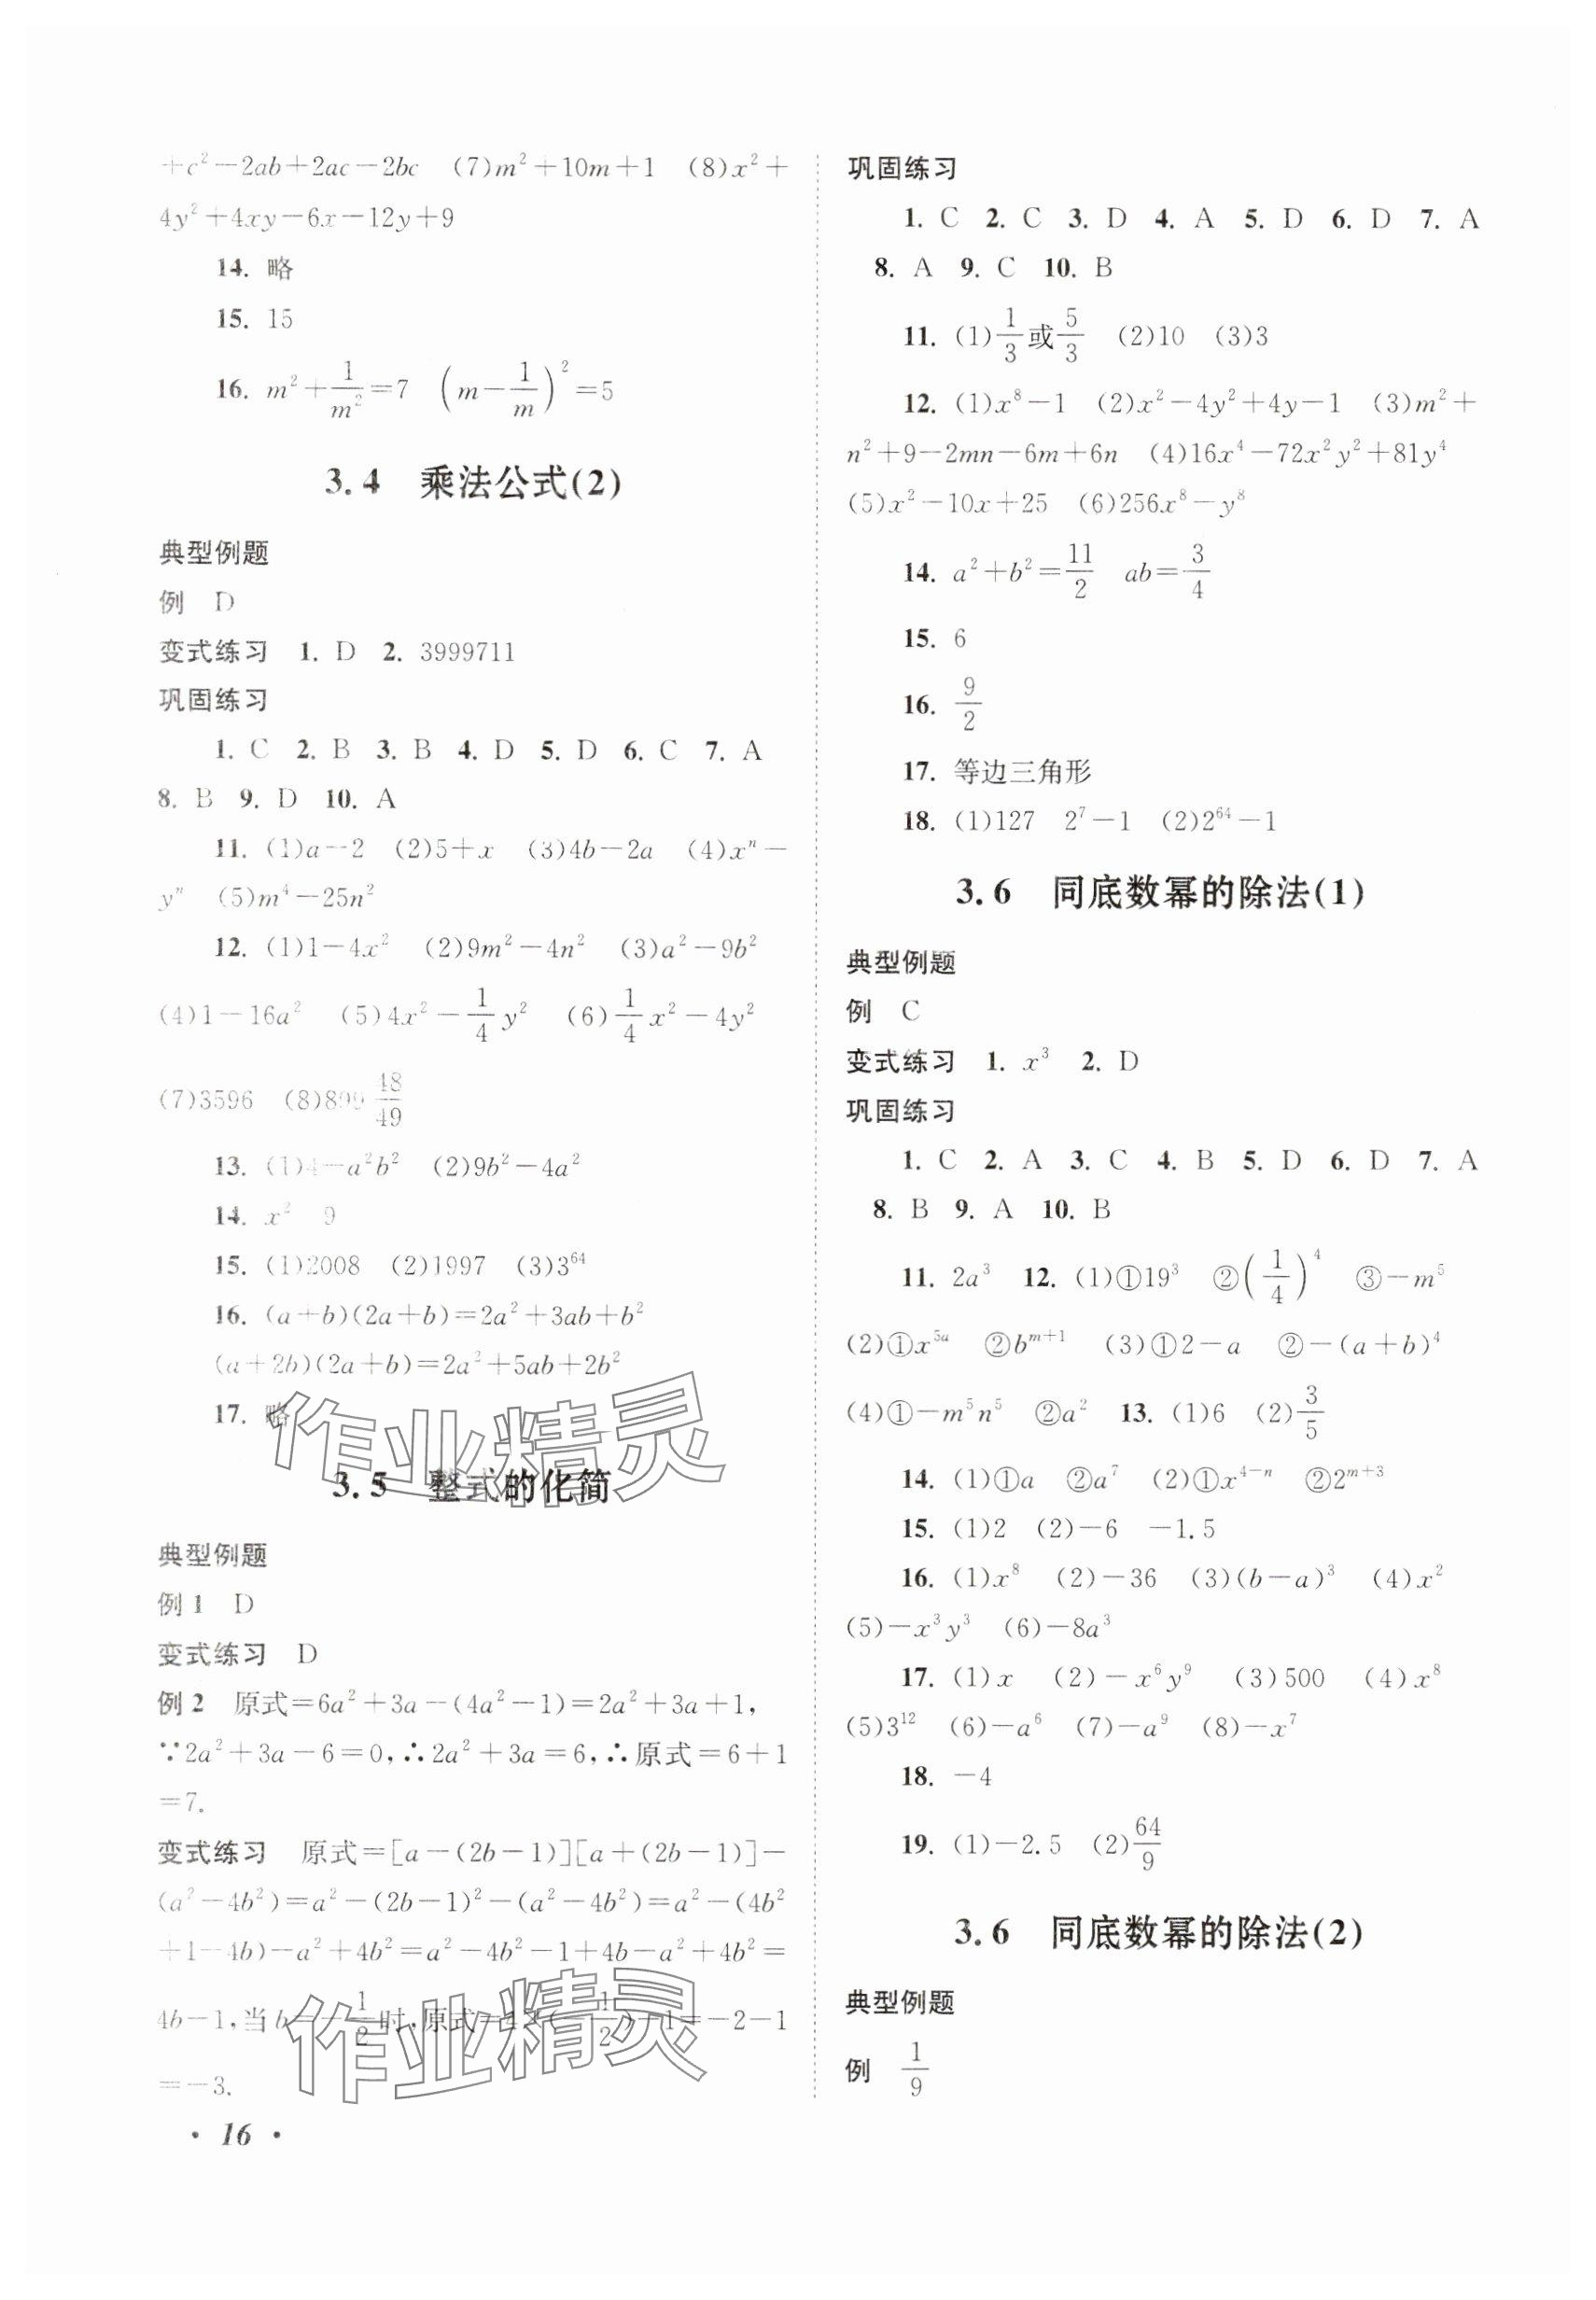 +c²-2ab+2ac-2bc (7)m²+10m+1 (8)x²+
4y²+4xy-6x-12y+9
14. 略
15. 15
16. m²+1/m²=7 (m-1/m)²=5
3.4 乘法公式(2)
典型例题
例 D
变式练习 1. D 2. 3999711
巩固练习
1. C 2. B 3. B 4. D 5. D 6. C 7. A
8. B 9. D 10. A
11. (1)a-2 (2)5+x (3)4b-2a (4)xⁿ-
yⁿ (5)m⁴-25n²
12. (1)1-4x² (2)9m²-4n² (3)a²-9b²
(4)1-16a² (5)4x²-1/4y² (6)1/4x²-4y²
(7)3596 (8)899 48/49
13. (1)4-a²b² (2)9b²-4a²
14. x² 9
15. (1)2008 (2)1997 (3)3⁶⁴
16. (a+b)(2a+b)=2a²+3ab+b²
(a+2b)(2a+b)=2a²+5ab+2b²
17. 略
3.5 整式的化简
典型例题
例1 D
变式练习 D
例2 原式=6a²+3a-(4a²-1)=2a²+3a+1,
∵2a²+3a-6=0,∴2a²+3a=6,∴原式=6+1
=7.
变式练习 原式=[a-(2b-1)][a+(2b-1)]-
(a²-4b²)=a²-(2b-1)²-(a²-4b²)=a²-(4b²
+1-4b)-a²+4b²=a²-4b²-1+4b-a²+4b²=
4b-1,当b=-1/2时,原式=4×(-1/2)-1=-2-1
=-3.
· 16 ·
巩固练习
1. C 2. C 3. D 4. A 5. D 6. D 7. A
8. A 9. C 10. B
11. (1)1/3或5/3 (2)10 (3)3
12. (1)x⁸-1 (2)x²-4y²+4y-1 (3)m²+
n²+9-2mn-6m+6n (4)16x⁴-72x²y²+81y⁴
(5)x²-10x+25 (6)256x⁸-y⁸
14. a²+b²=11/2 ab=3/4
15. 6
16. 9/2
17. 等边三角形
18. (1)127 2⁷-1 (2)2⁶⁴-1
3.6 同底数幂的除法(1)
典型例题
例 C
变式练习 1. x³ 2. D
巩固练习
1. C 2. A 3. C 4. B 5. D 6. D 7. A
8. B 9. A 10. B
11. 2a³ 12. (1)①19³ ②(1/4)⁴ ③-m⁵
(2)①x⁵ᵃ ②bᵐ⁺¹ (3)①2-a ②-(a+b)⁴
(4)①-m⁵n⁵ ②a² 13. (1)6 (2)3/5
14. (1)①a ②a⁷ (2)①x⁴⁻ⁿ ②2ᵐ⁺³
15. (1)2 (2)-6 -1.5
16. (1)x⁸ (2)-36 (3)(b-a)³ (4)x²
(5)-x³y³ (6)-8a³
17. (1)x (2)-x⁶y⁹ (3)500 (4)x⁸
(5)3¹² (6)-a⁶ (7)-a⁹ (8)-x⁷
18. -4
19. (1)-2.5 (2)64/9
3.6 同底数幂的除法(2)
典型例题
例 1/9
作业精灵
作业精灵